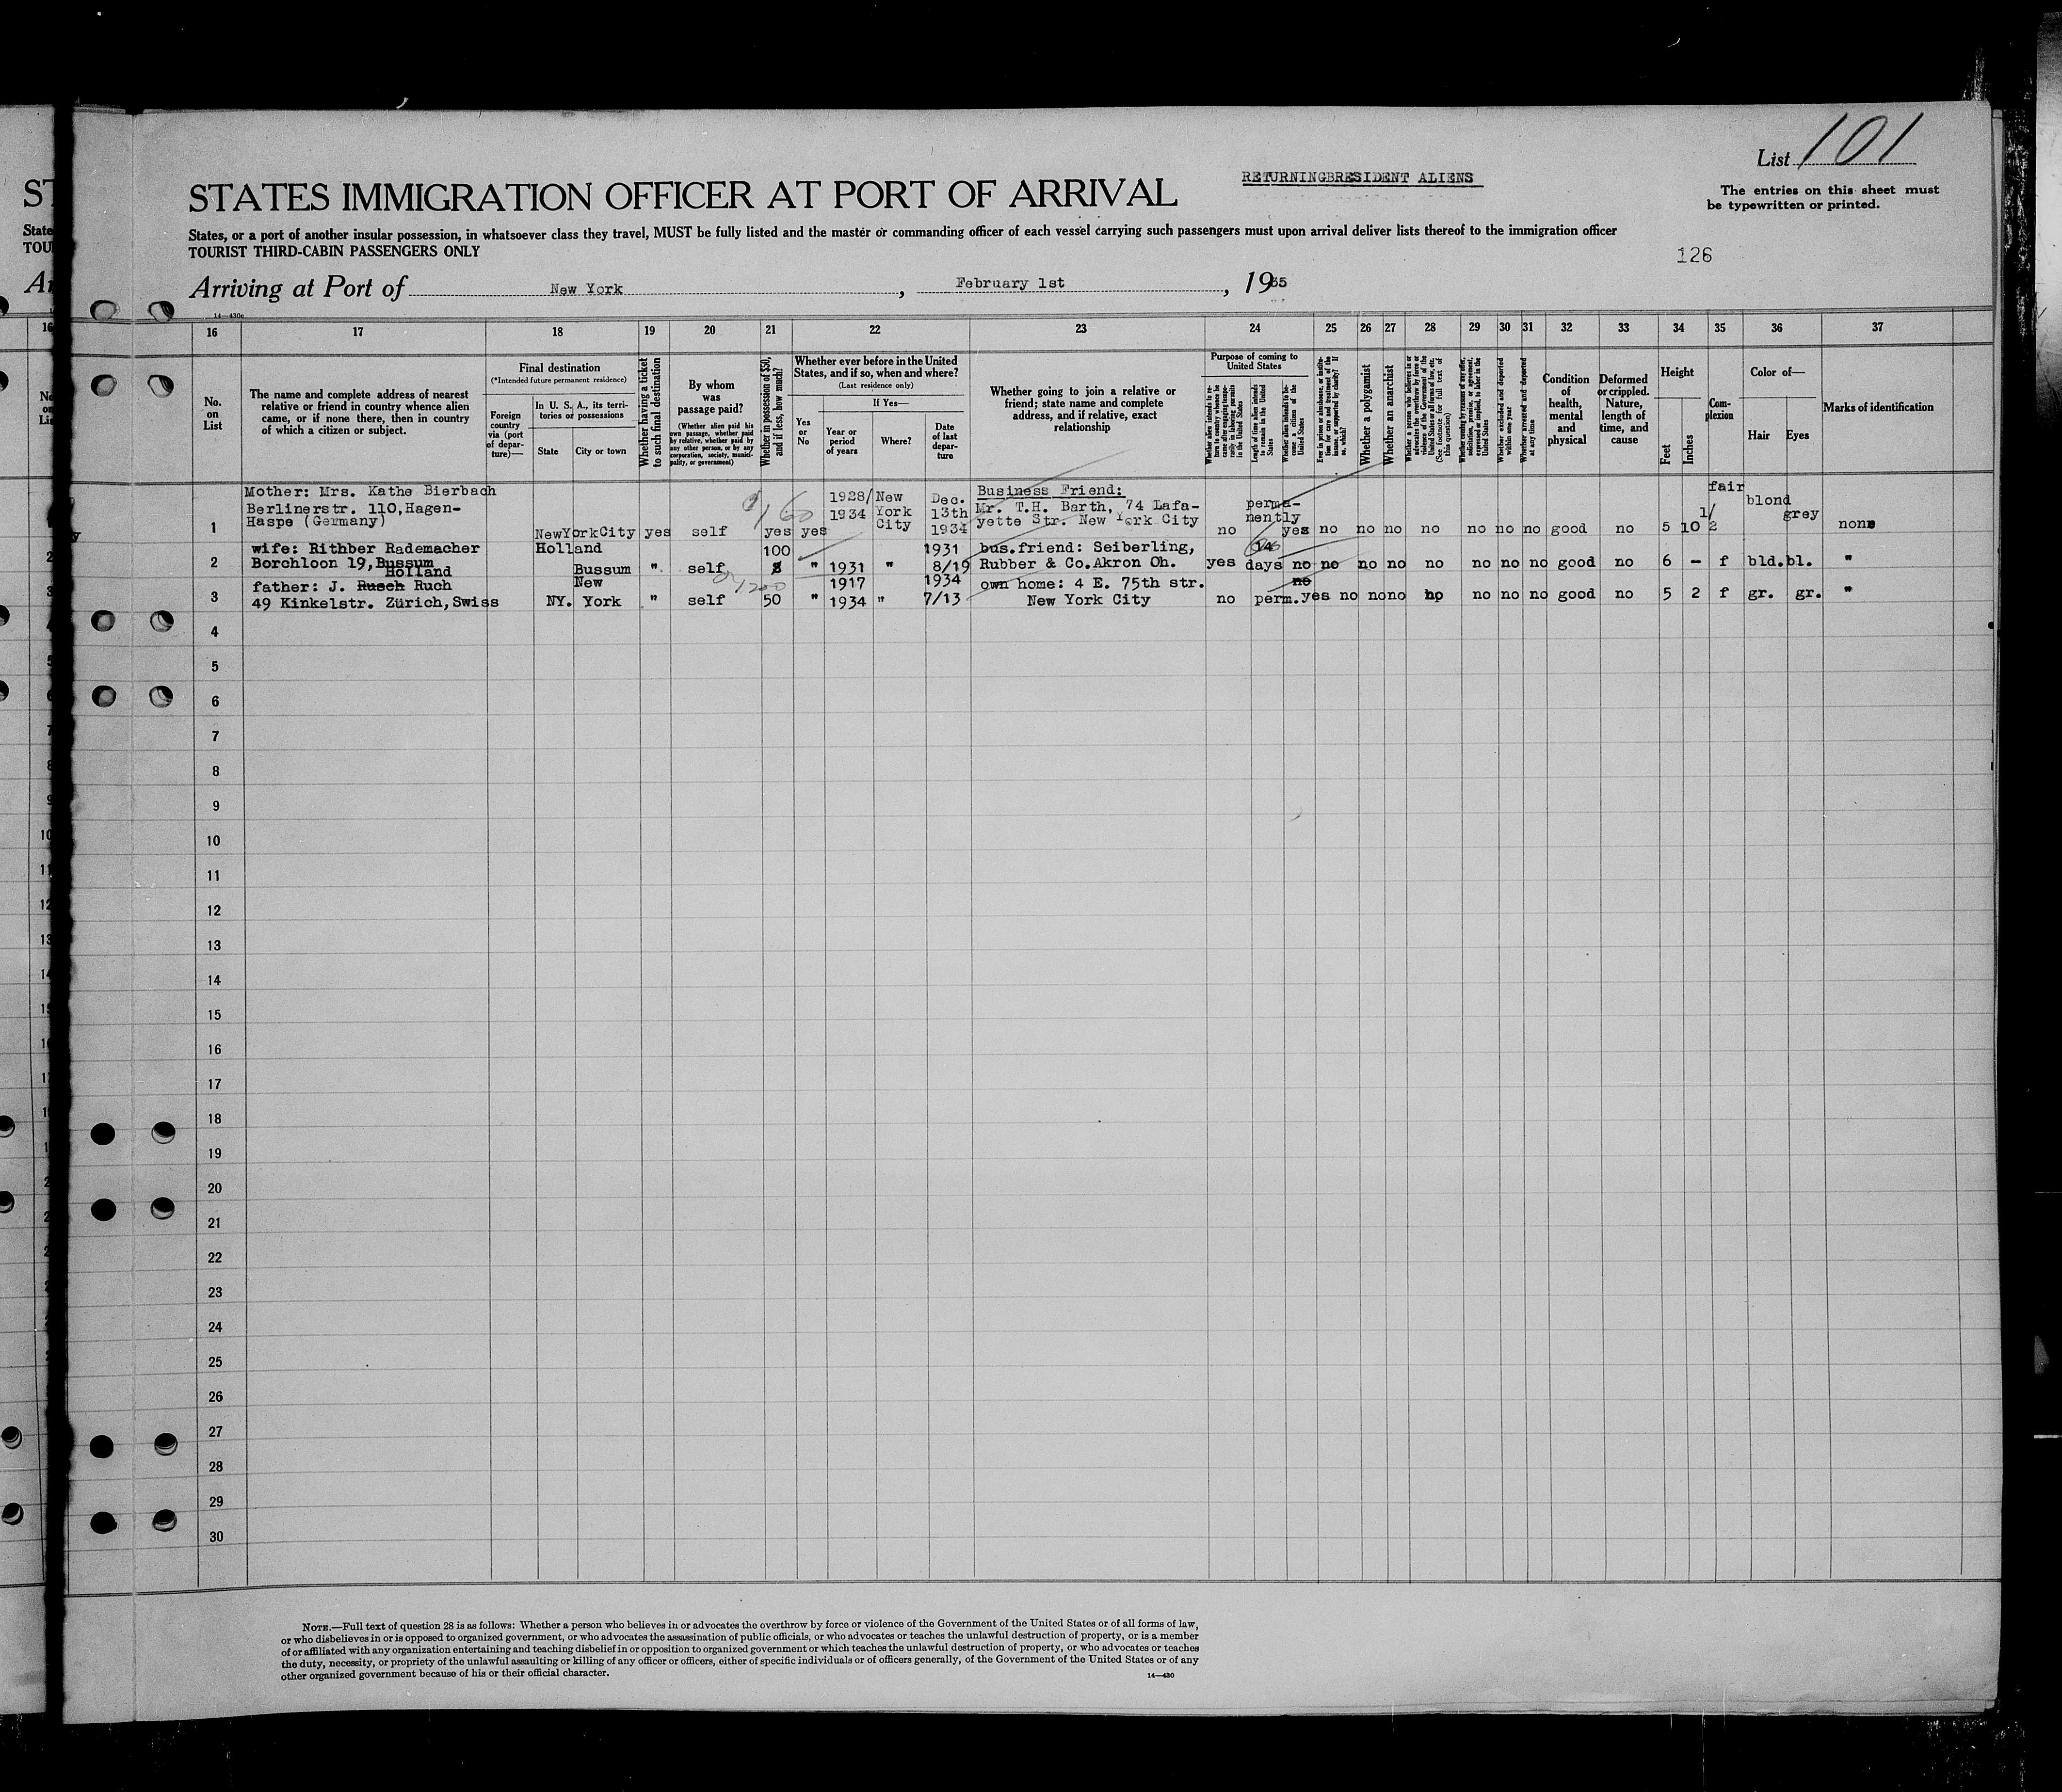 List 101
RETURNINGBRESIDENT ALIENS
STATES IMMIGRATION OFFICER AT PORT OF ARRIVAL
The entries on this sheet must
be typewritten or printed.
States, or a port of another insular possession, in whatsoever class they travel, MUST be fully listed and the master or commanding officer of each vessel carrying such passengers must upon arrival deliver lists thereof to the immigration officer
TOURIST THIRD-CABIN PASSENGERS ONLY
126
Arriving at Port of New York, February 1st, 1935
14—430c
16 17 18 19 20 21 22 23 24 25 26 27 28 29 30 31 32 33 34 35 36 37
No.
on
List
The name and complete address of nearest
relative or friend in country whence alien
came, or if none there, then in country
of which a citizen or subject.
Final destination
(*Intended future permanent residence)
Foreign
country
via (port
of depar-
ture)—
In U. S. A., its terri-
tories or possessions
State
City or town
Whether having a ticket
to such final destination
By whom
was
passage paid?
(Whether alien paid his
own passage, whether paid
by relative, whether paid by
any other person, or by any
corporation, society, munici-
pality, or government)
Whether in possession of $50,
and if less, how much?
Whether ever before in the United
States, and if so, when and where?
(Last residence only)
Yes
or
No
If Yes—
Year or
period
of years
Where?
Date
of last
depar-
ture
Whether going to join a relative or
friend; state name and complete
address, and if relative, exact
relationship
Purpose of coming to
United States
Length of time alien intends
to remain in the United
States
Whether alien intends to be-
come a citizen of the
United States
Whether a polygamist
Whether an anarchist
(See footnote for full text of
this question)
Whether excluded and deported
within one year
Whether arrested and deported
at any time
Condition
of
health,
mental
and
physical
Deformed
or crippled.
Nature,
length of
time, and
cause
Height
Feet
Inches
Com-
plexion
Color of—
Hair
Eyes
Marks of identification
1 Mother: Mrs. Kathe Bierbach
Berlinerstr. 110,Hagen-
Haspe (Germany)
NewYorkCity yes self yes yes
1928/
1934
New
York
City
Dec.
13th
1934
Business Friend:
Mr. T.H. Barth, 74 Lafa-
yette Str. New York City
no perma-
nently
yes no no no no no no no good no 5 10 1/2 fair blond grey none
2 wife: Rithber Rademacher
Borchloon 19,Bussum
Holland
Holland
Bussum " self 100 " 1931 " 1931
8/19
bus.friend: Seiberling,
Rubber & Co.Akron Oh.
yes 14
days no no no no no no no no good no 6 - f bld. bl. "
3 father: J. Rusch Ruch
49 Kinkelstr. Zürich,Swiss
NY. New
York " self 50 " 1917
1934 " 1934
7/13
own home: 4 E. 75th str.
New York City
no perm. no
yes no no no no no no no good no 5 2 f gr. gr. "
4
5
6
7
8
9
10
11
12
13
14
15
16
17
18
19
20
21
22
23
24
25
26
27
28
29
30
NOTE.—Full text of question 28 is as follows: Whether a person who believes in or advocates the overthrow by force or violence of the Government of the United States or of all forms of law,
or who disbelieves in or is opposed to organized government, or who advocates the assassination of public officials, or who advocates or teaches the unlawful destruction of property, or is a member
of or affiliated with any organization entertaining and teaching disbelief in or opposition to organized government or which teaches the unlawful destruction of property, or who advocates or teaches
the duty, necessity, or propriety of the unlawful assaulting or killing of any officer or officers, either of specific individuals or of officers generally, of the Government of the United States or of any
other organized government because of his or their official character.
14—430